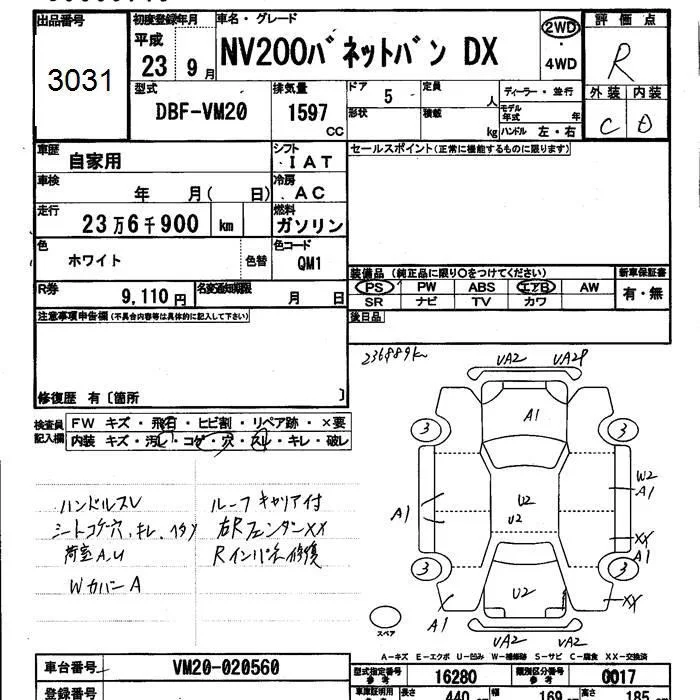 出品番号
3031
初度登録年月
平成
23 9月
車名・グレード
NV200バネットバン DX
2WD
・
4WD
評価点
R
外装 内装
C D
型式
DBF-VM20
排気量
1597
CC
ドア 5
形状
定員
人
積載
kg
ディーラー・並行
モデル
年式 年
ハンドル 左・右
車歴
自家用
シフト
IAT
車検
年 月( 日)
冷房
AC
走行
23万6千900 km
燃料
ガソリン
色
ホワイト
色替
色コード
QM1
R券
9,110円
名変通知期限
月 日
セールスポイント(正常に機能するものに限ります)
装備品 (純正品に限り○をつけてください)
新車保証書
PS PW ABS エアB AW
SR ナビ TV カワ
有・無
後日品
注意事項申告欄(不具合内容等は具体的に記入して下さい)
修復歴 有〔箇所 〕
検査員
記入欄
FW キズ・飛石・ヒビ割・リペア跡・×要
内装 キズ・汚レ・コゲ・穴・スレ・キレ・破レ
236889km
VA2 VA2P
A1
3 3
W2
A1
A1
U2
U2
XX
A1
3 3
U2
XX
A1
VA2 VA2
スペア
ハンドルスレ ルーフキャリア付
シートコゲ穴、キレ、ヘタリ 右RフェンダーXX
荷室A,U Rインパネ修復
WカバーA
A−キズ E−エクボ U−凹み W−補修跡 S−サビ C−腐食 XX−交換済
車台番号
VM20-020560
型式指定番号
参考
16280
類別区分番号
参考
0017
登録番号
車庫証明用
長さ 440 幅 169 高さ 185